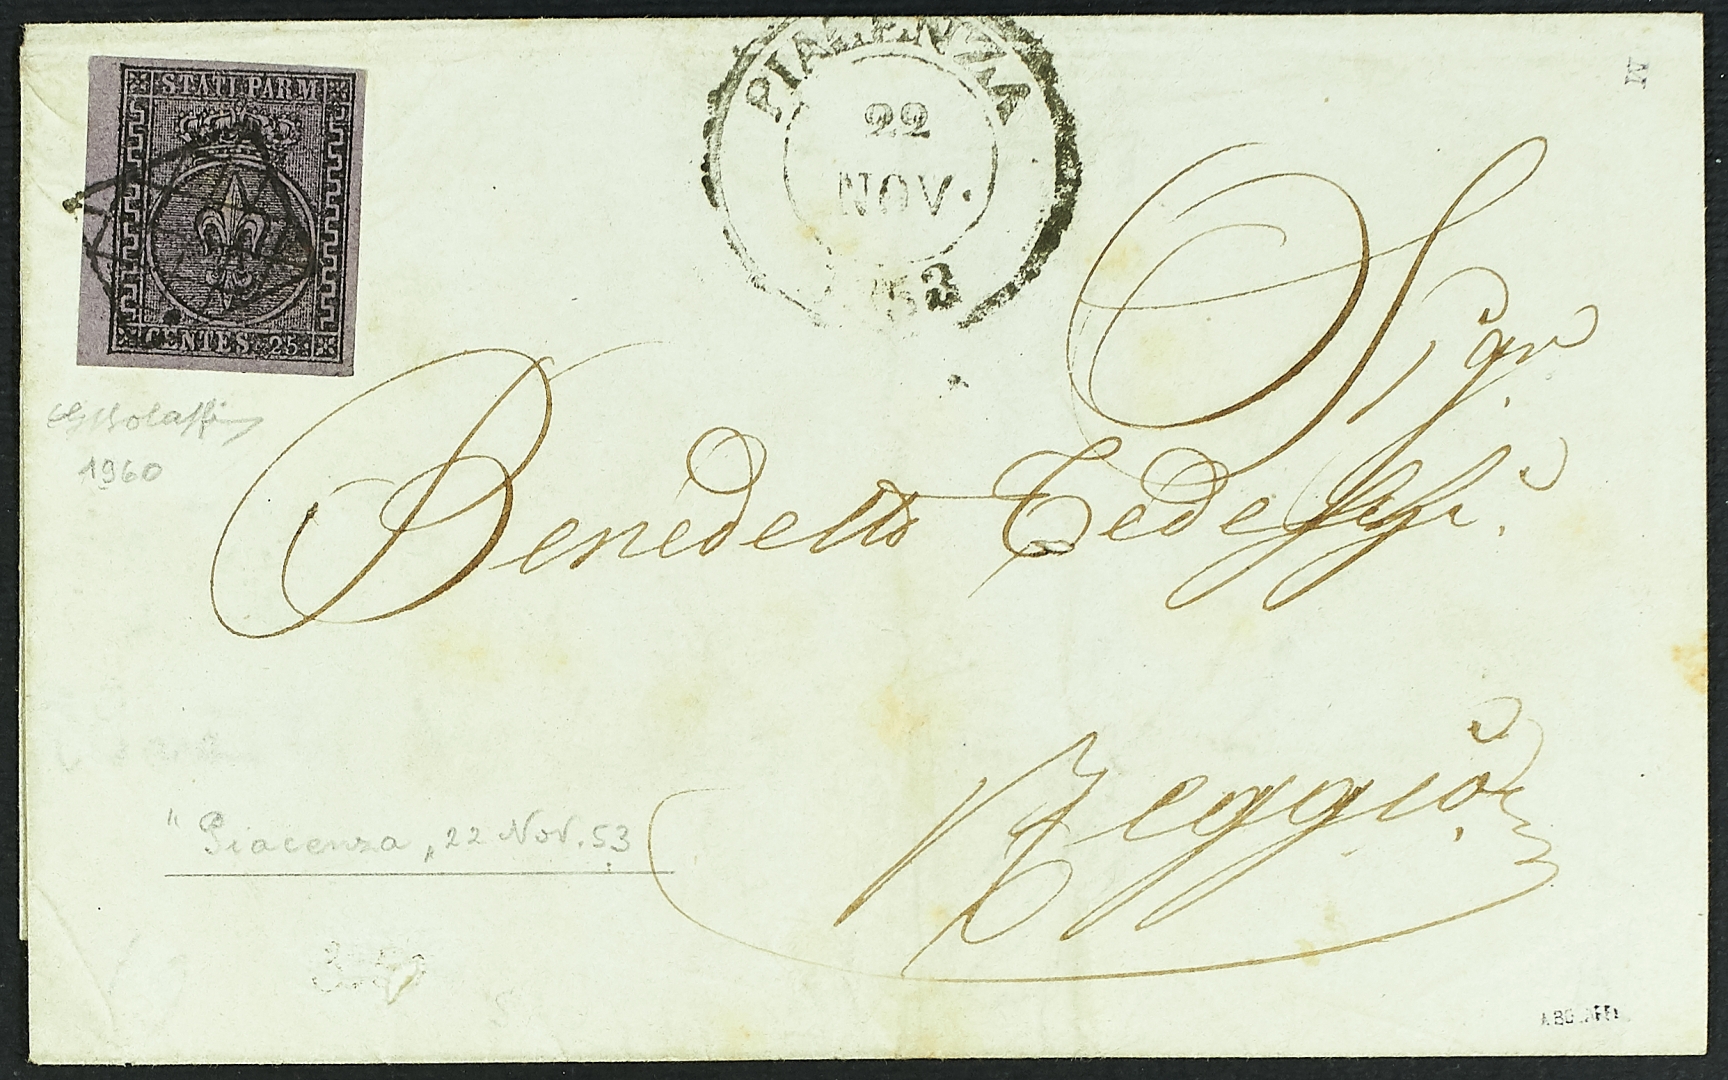 STATI PARM
CENTES. 25
PIACENZA
22
NOV.
53
M
Sigr
Benedetto Tedeschi.
Reggio
GBolaffi
1960
"Piacenza„ 22 Nov. 53
A BOLAFFI